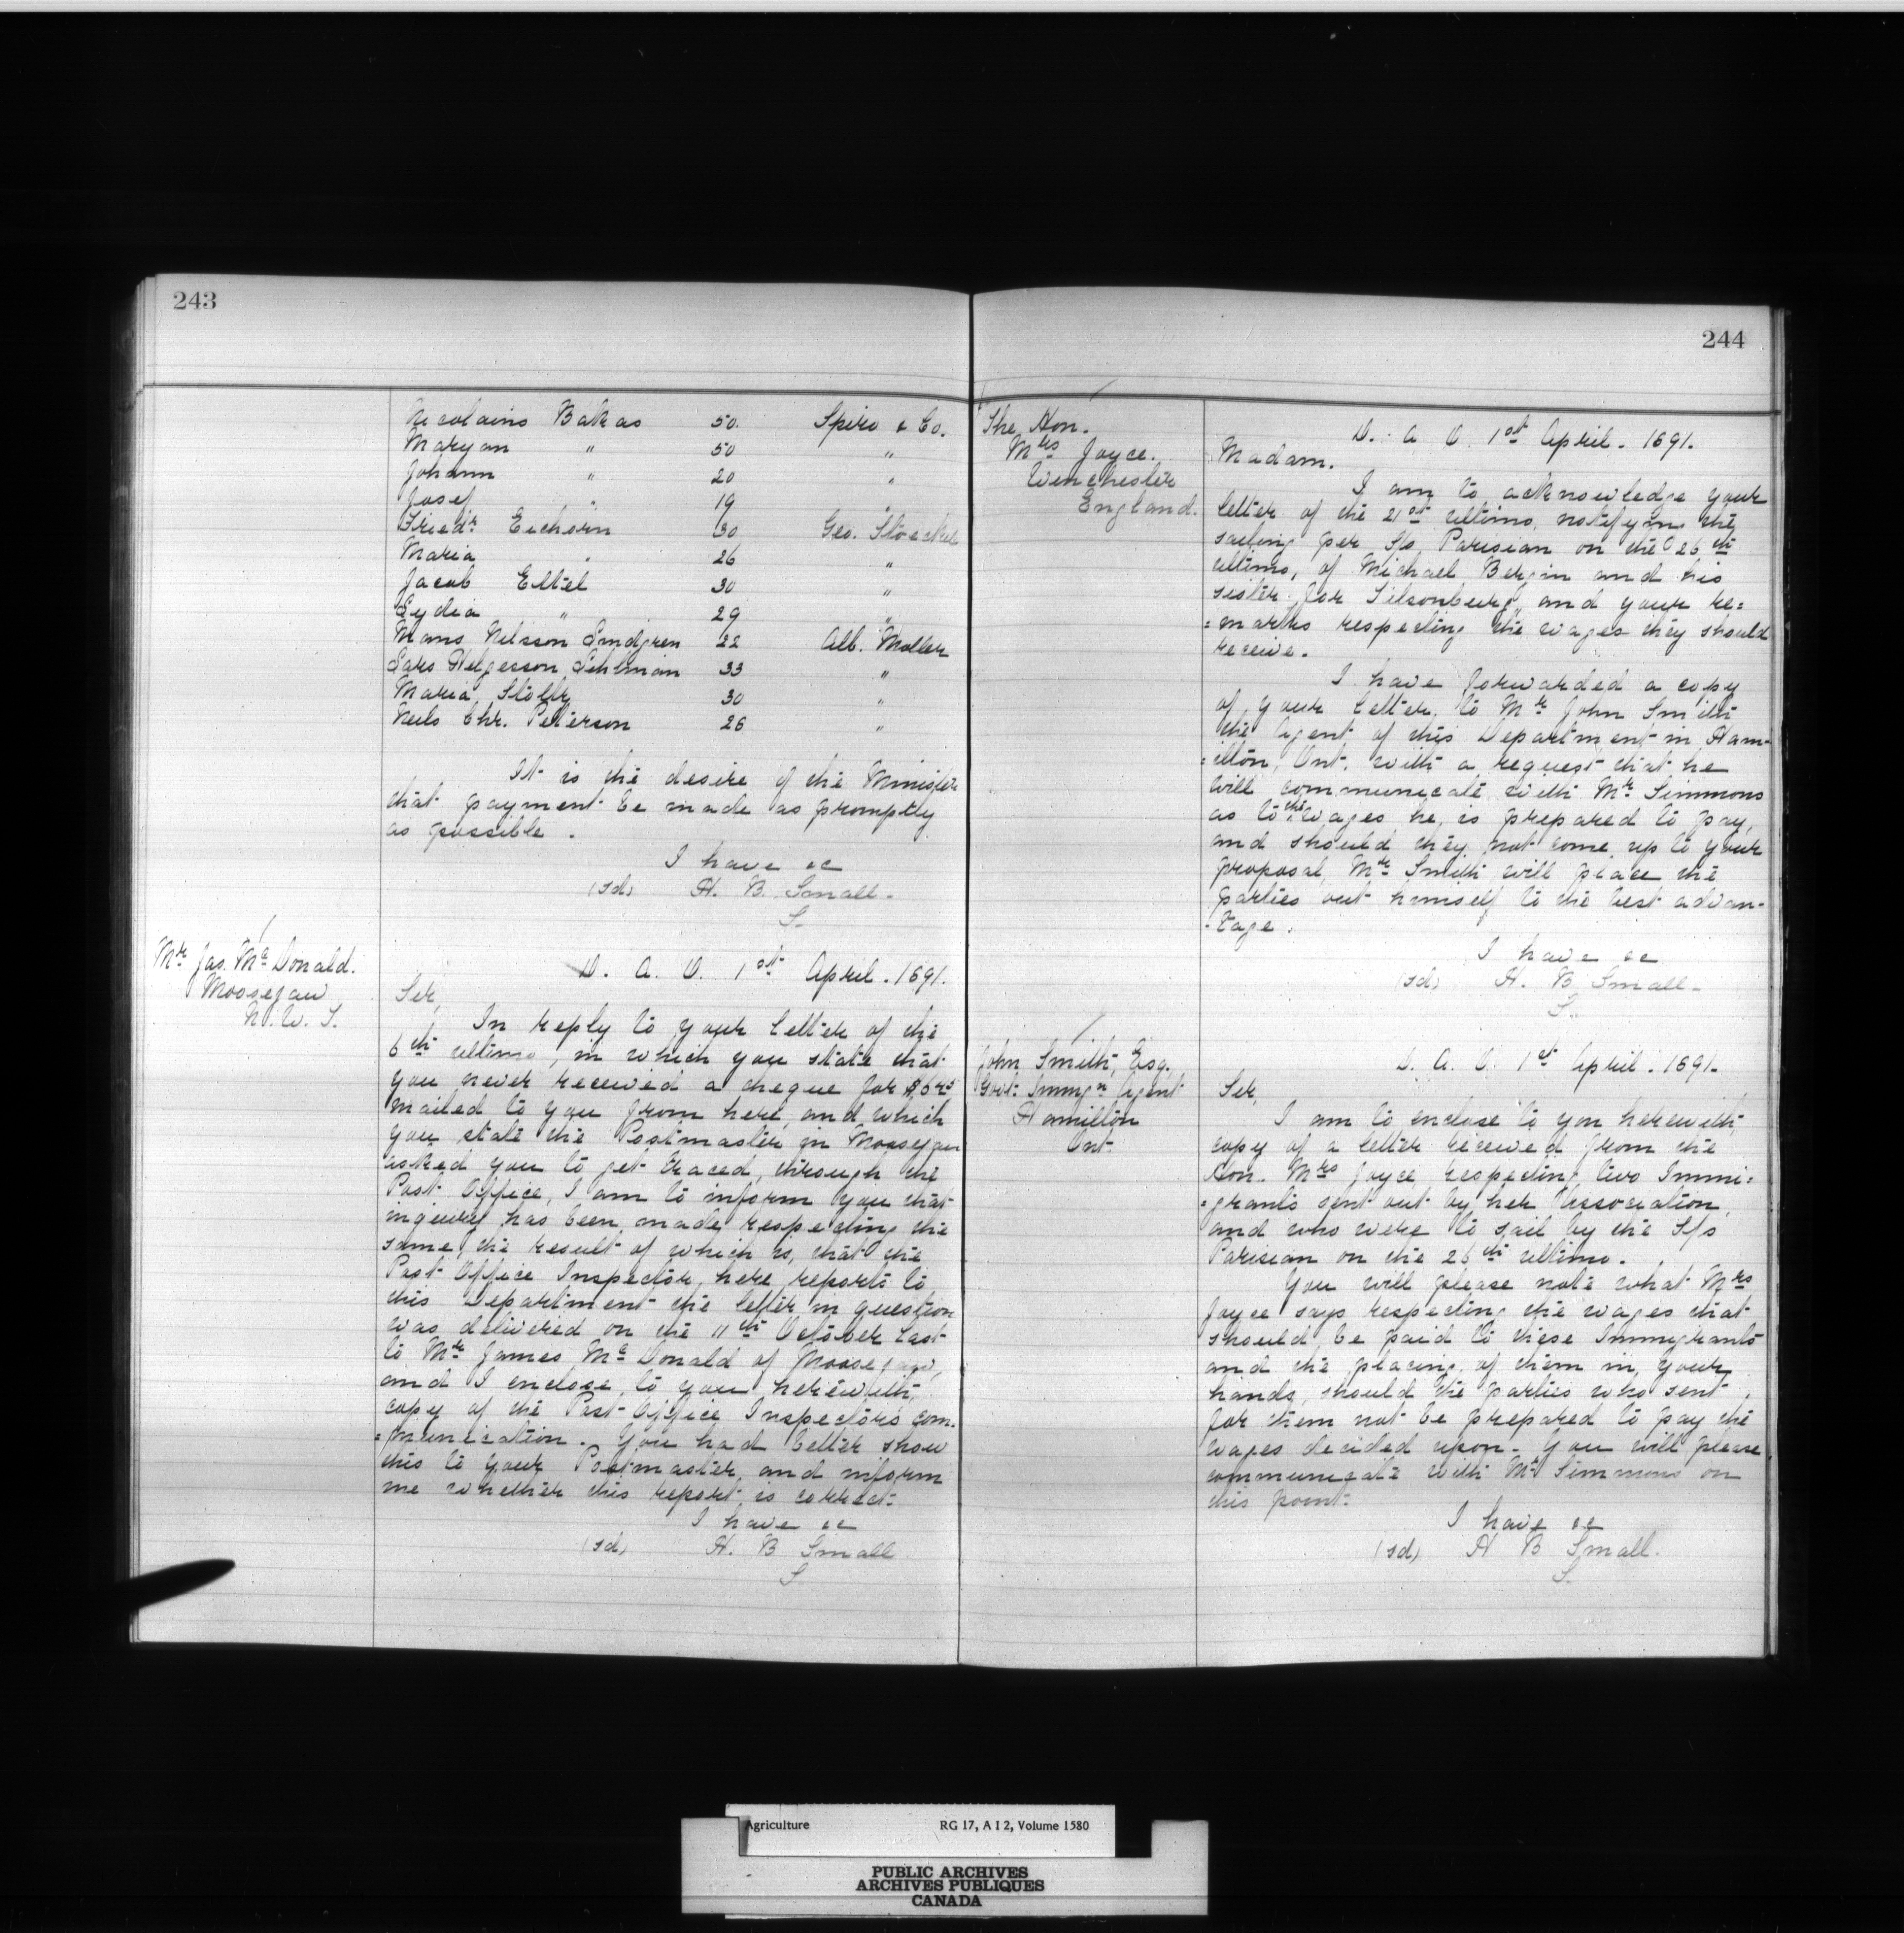 243
Nicolains Bakas 50. Spiro & Co.
Maryan " 50 "
Johann " 20 "
Josef " 19 "
Friedr Eichorn 30 Geo. Stoeckel
Maria " 26 "
Jacob Ettel 30 "
Lydia " 29 "
Mans Nilsson Lindgren 22 Alb. Moller
Lars Helgesson Lihlman 33 "
Maria Stolby 30 "
Neils Chr. Petterson 26 "
It is the desire of the Minister
that payment be made as promptly
as possible.
I have &c
(sd) H. B. Small.
S.
Mr Jas. Mc Donald.
Moosejaw
N. W. T.
D. A. O. 1st April. 1891.
Sir,
In reply to your letter of the
6th ultimo, in which you state that
you never received a cheque for
mailed to you from here, and which
you state the Postmaster in Moosejaw
asked you to get traced, through the
Post Office, I am to inform you that
inquiry has been made respecting the
same, the result of which is, that the
Post Office Inspector, here, reports to
this Department the letter in question
was delivered on the 11th October last
to Mr James Mc Donald of Moosejaw,
and I enclose to you herewith,
copy of the Post Office Inspectors com-
=munication. You had better show
this to your Postmaster, and inform
me whether this report is correct.
I have &c
(sd) H. B Small
S.
244
The Hon.
Mrs Joyce.
Winchester
England.
D. A. O. 1st April. 1891.
Madam.
I am to acknowledge your
letter of the 21st ultimo, notifying the
sailing per S/s Parisian on the 26th
ultimo, of Michael Bergin and his
sister for Tilsonburg, and your re=
=marks respecting the wages they should
receive.
I have forwarded a copy
of your letter, to Mr John Smith
the Agent of this Department in Ham-
=ilton, Ont. with a request that he
will communicate with Mr Simmons
as to the wages he is prepared to pay,
and should they not come up to your
proposal, Mr Smith will place the
parties out himself to the best advan-
-tage.
I have &c
(sd) H. B Small.
S.
John Smith, Esq.
Govt. Immgn Agent
Hamilton
Ont.
D. A. O. 1st April. 1891.
Sir,
I am to enclose to you herewith,
copy of a letter received from the
Hon. Mrs Joyce respecting two Immi=
=grants sent out by her Association,
and who were to sail by the S/s
Parisian on the 26th ultimo.
You will please note what Mrs
Joyce says respecting the wages that
should be paid to these Immigrants
and the placing of them in your
hands, should the parties who sent
for them not be prepared to pay the
wages decided upon. You will please
communicate with Mr Simmons on
this point.
I have &c
(sd) H B Small.
S.
Agriculture RG 17, A I 2, Volume 1580
PUBLIC ARCHIVES
ARCHIVES PUBLIQUES
CANADA